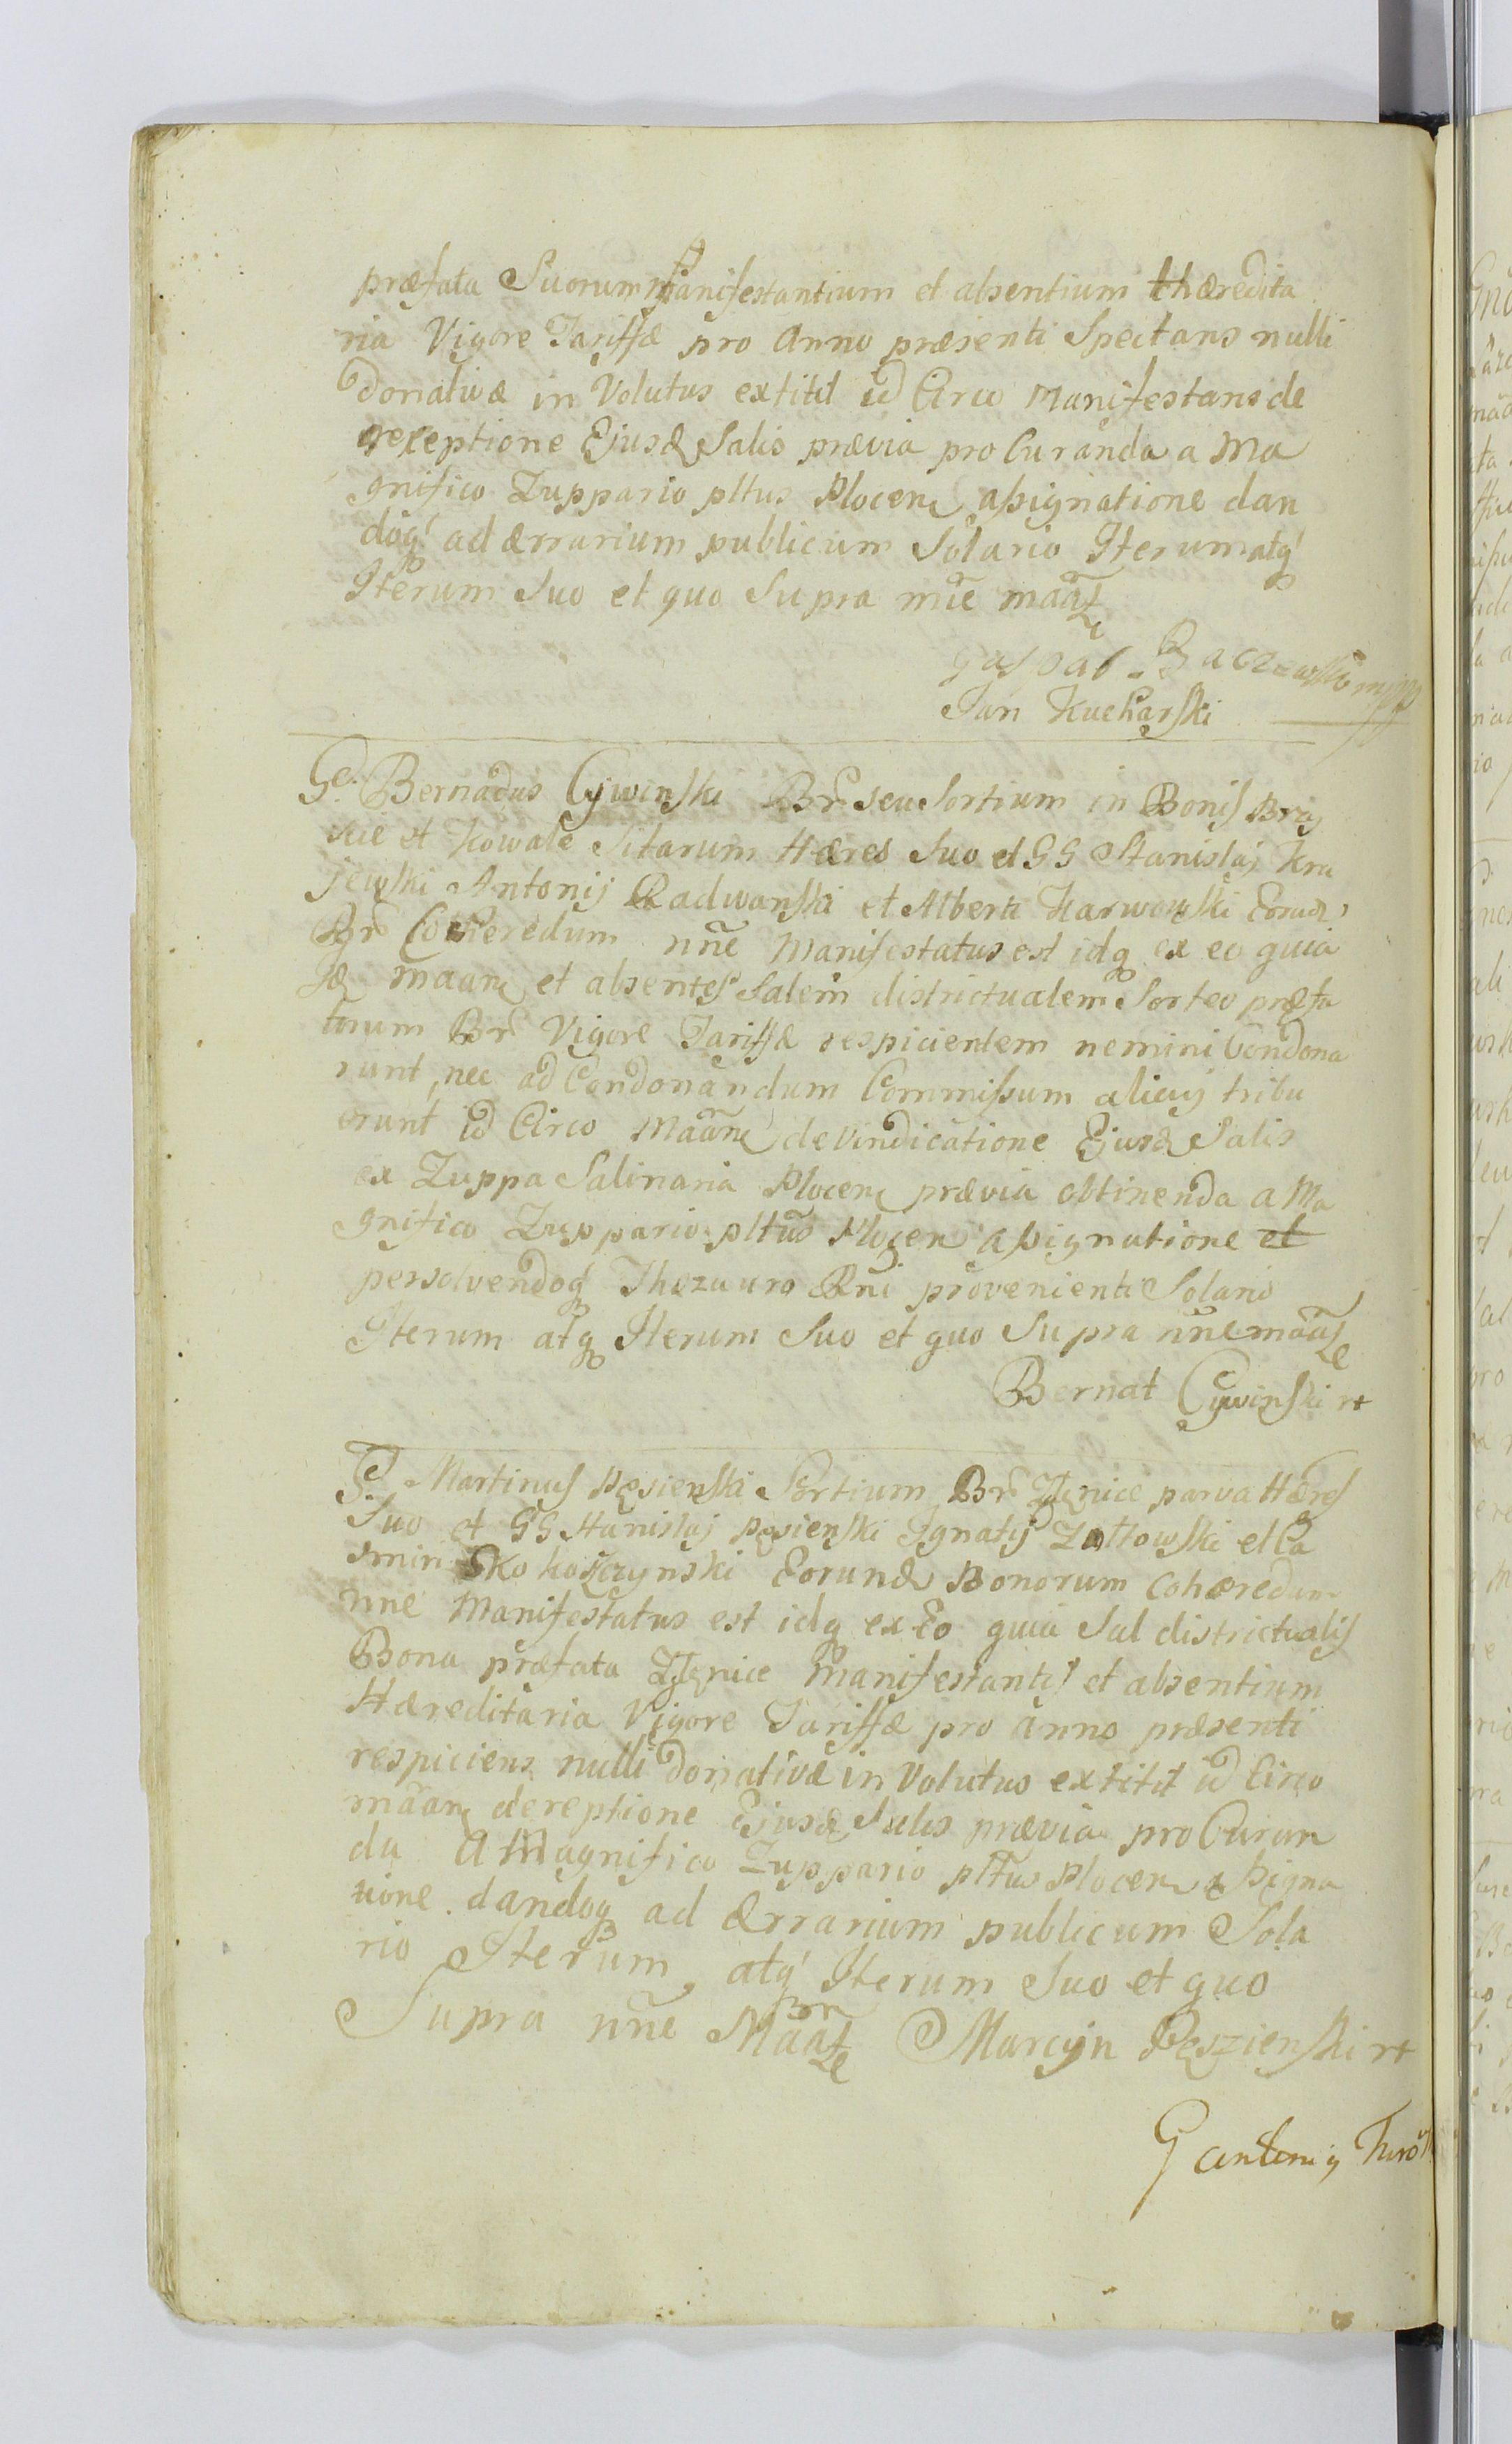 præfata Suorum Manifestantium et absentium thæredita
ria Vigore Tariffæ pro Anno præsenti Spectans nulli
donativæ in Volutus extitit id Circo Manifestans de
receptione Ejusd Salis prævia pro Curanda a Ma
gnifico Zuppario pltus Plocen assignatione dan
doq ad Ærrarium publicum Solario Iterum atq
Iterum Suo et quo Supra nñe mããt
Gaspar Baczewski mpp
Jan Kucharski
Gd. Bernadus Cywinski Br̃ seu Sortium in Bonis Brzy
scie et Kowale Sitarum Hæres Suo et GG Stanislaj Kra
jewski Antonij Radwanski et Alberti Karwowski Eorund
Br̃ Cohæredum nñe Manifestatus est idq ex eo quia
Sæ maañ et absentes Salem districtualem Sortes præfa
torum Br̃ Vigore Tariffæ respicientem nemini Condona
runt, nec ad Condonandum Commissum alicuj tribu
erunt id Circo Mããn de vindicatione Ejusd Salis
ex Zuppa Salinaria Plocen prævia obtinenda a Ma
gnifico Zuppario pltus Plocen assignatione et
persolvendoq Thezauro Rni provenienti Solario
Iterum atq Iterum Suo et quo Supra nñe mããt
Bernat Cywinski
G. Martinus Pęsienski Sortium Br̃ parva Hæres
Suo et GG Stanislaj Pęsienski Ignatij Załtowski et Ca
smiri Eorund Bonorum Cohæredum
nñe Manifestatus est idq ex Eo quia Sal districtualis
Bona præfata Manifestantis et absentium
Hæreditaria Vigore Tariffæ pro anno præsenti
respiciens nulli donativæ in Volutus extitit id Circo
mããn de reptione Ejusd Salis prævia pro Curan
da a Magnifico Zuppario pltus Plocen assigna
tione dandoq ad Ærrarium publicum Sola
rio Iterum atq Iterum Suo et quo
Supra nñe Mããt Marcyn Pęszienski
G Antonij